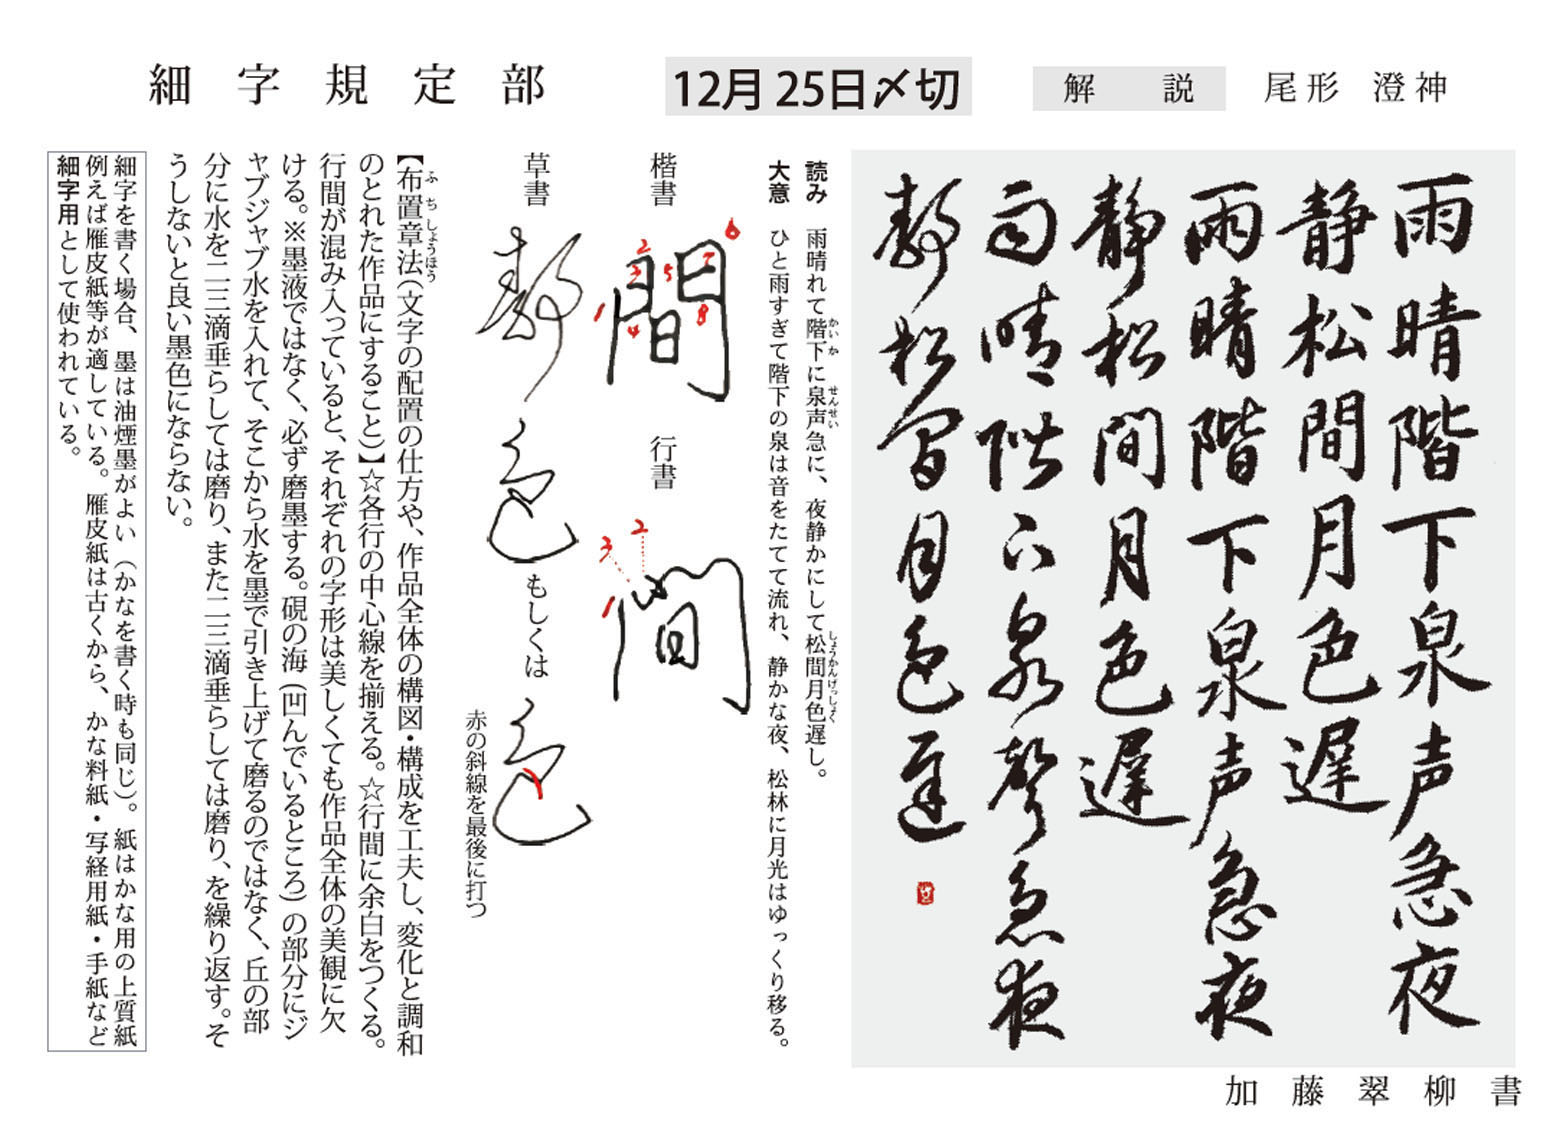 細字規定部
12月25日〆切
解説 尾形 澄神
雨晴階下泉声急夜
静松間月色遅
雨晴階下泉声急夜
静松間月色遅
雨晴階下泉聲急夜
静松間月色遅
加藤翠柳書
読み 雨晴れて階下に泉声急に、夜静かにして松間月色遅し。
かいか せんせい しょうかんげっしょく
大意 ひと雨すぎて階下の泉は音をたてて流れ、静かな夜、松林に月光はゆっくり移る。
楷書 間
1 2 3 4 5 6 7 8
行書 間
1 2 3
草書 静 色 もしくは 色
赤の斜線を最後に打つ
【布置章法(文字の配置の仕方や、作品全体の構図・構成を工夫し、変化と調和
ふちしょうほう
のとれた作品にすること)】☆各行の中心線を揃える。☆行間に余白をつくる。
行間が混み入っていると、それぞれの字形は美しくても作品全体の美観に欠
ける。※墨液ではなく、必ず磨墨する。硯の海(凹んでいるところ)の部分にジ
ャブジャブ水を入れて、そこから水を墨で引き上げて磨るのではなく、丘の部
分に水を二三滴垂らしては磨り、また二三滴垂らしては磨り、を繰り返す。そ
うしないと良い墨色にならない。
細字を書く場合、墨は油煙墨がよい(かなを書く時も同じ)。紙はかな用の上質紙
例えば雁皮紙等が適している。雁皮紙は古くから、かな料紙・写経用紙・手紙など
細字用として使われている。